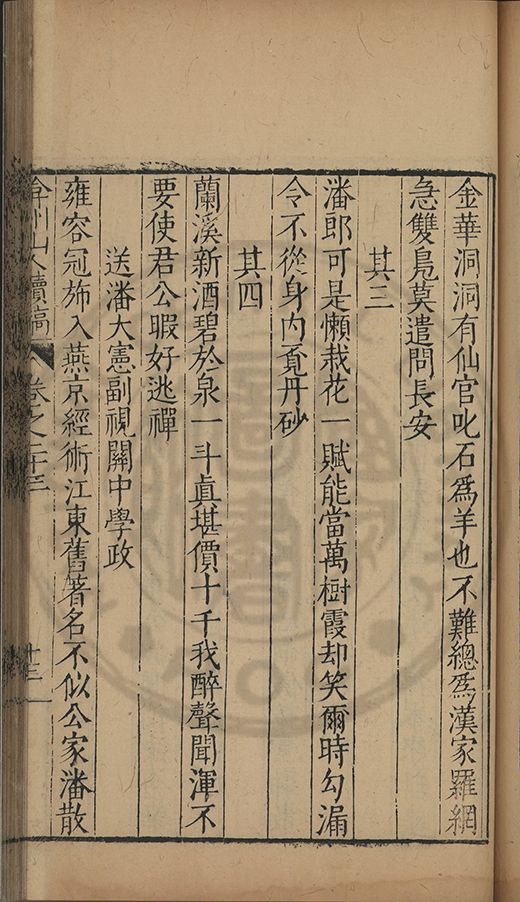 金華洞洞有仙官叱石爲羊也不難總爲漢家羅網
急雙鳧莫遣問長安
其三
潘郎可是懶栽花一賦能當萬樹霞却笑爾時勾漏
令不從身内覔丹砂
其四
蘭溪新酒碧於泉一斗眞堪價十千我醉聲聞渾不
要使君公暇好逃禪
送潘大憲副視關中學政
雍容冠斾入燕京經術江東舊著名不似公家潘散
弇州山人續稿
卷之二十三
十三